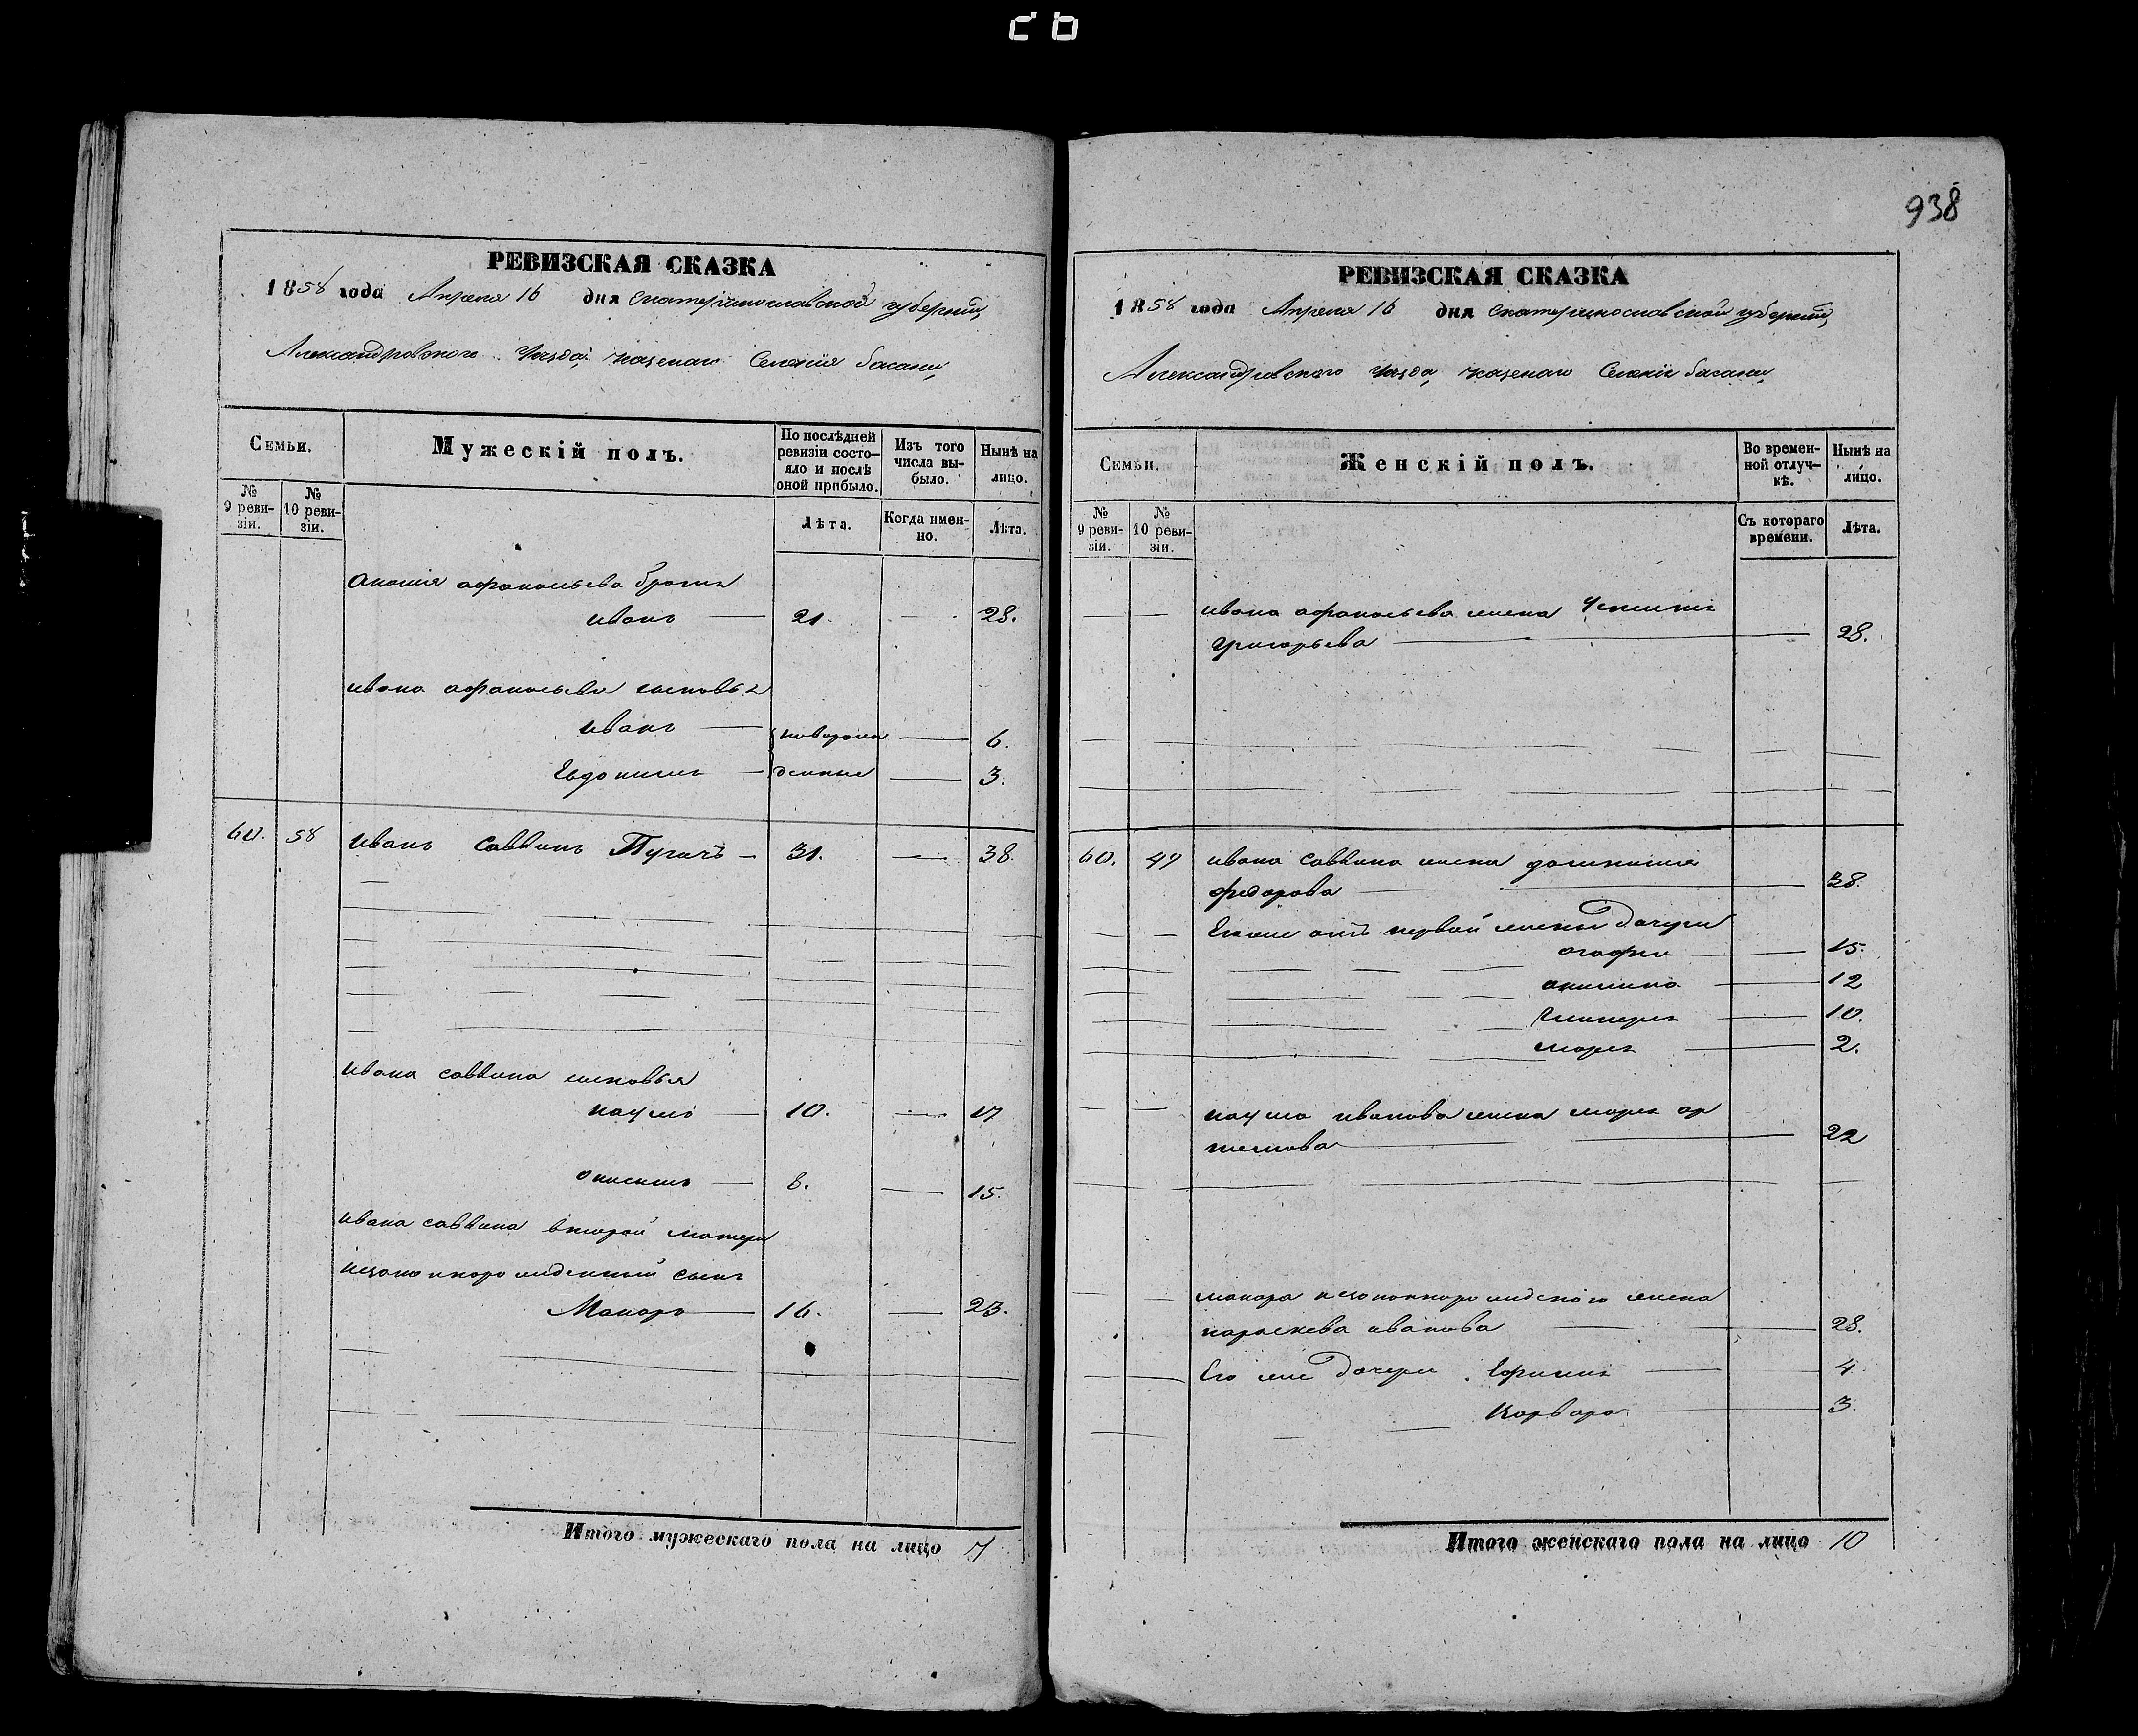 938
РЕВИЗСКАЯ СКАЗКА
1858 года Апреля 16 дня Екатеринославской губернии,
Александровского Уезда, казенаго Селения басани,
Семьи.
Мужескій полъ.
По послѣдней ревизіи состояло и послѣ оной прибыло.
Изъ того числа выбыло.
Нынѣ на лицо.
№ 9 ревизіи.
№ 10 ревизіи.
Лѣта.
Когда именно.
Лѣта.
афанасьева братъ
иванъ 21. 28.
ивана афанасьева сыновья
иванъ новорож 6.
Евдокимъ денные 3.
60. 58 иванъ саввинъ Пугачъ 31. 38.
ивана саввина сыновья
наумъ 10. 17
онисимъ 8. 15.
ивана саввина второй матери
незаконнорожденный сынъ
Макаръ 16. 23.
Итого мужескаго пола на лицо 7
РЕВИЗСКАЯ СКАЗКА
1858 года Апреля 16 дня Екатеринославской губернии,
Александровского Уезда, казенаго Селения басани,
Семьи.
Женскій полъ.
Во временной отлучкѣ.
Нынѣ на лицо.
№ 9 ревизіи.
№ 10 ревизіи.
Съ котораго времени.
Лѣта.
ивана афанасьева жена
григорьева 28.
60. ивана саввина жена
федорова 38.
Его же отъ первой жены дочери
агафия 15.
акилина 12
гликерия 10.
мария 2.
наума иванова жена мария ар
темова 22
макара незаконнорожденого жена
параскева иванова 28.
Его же дочери Ефимия 4
варвара 3.
Итого женскаго пола на лицо 10